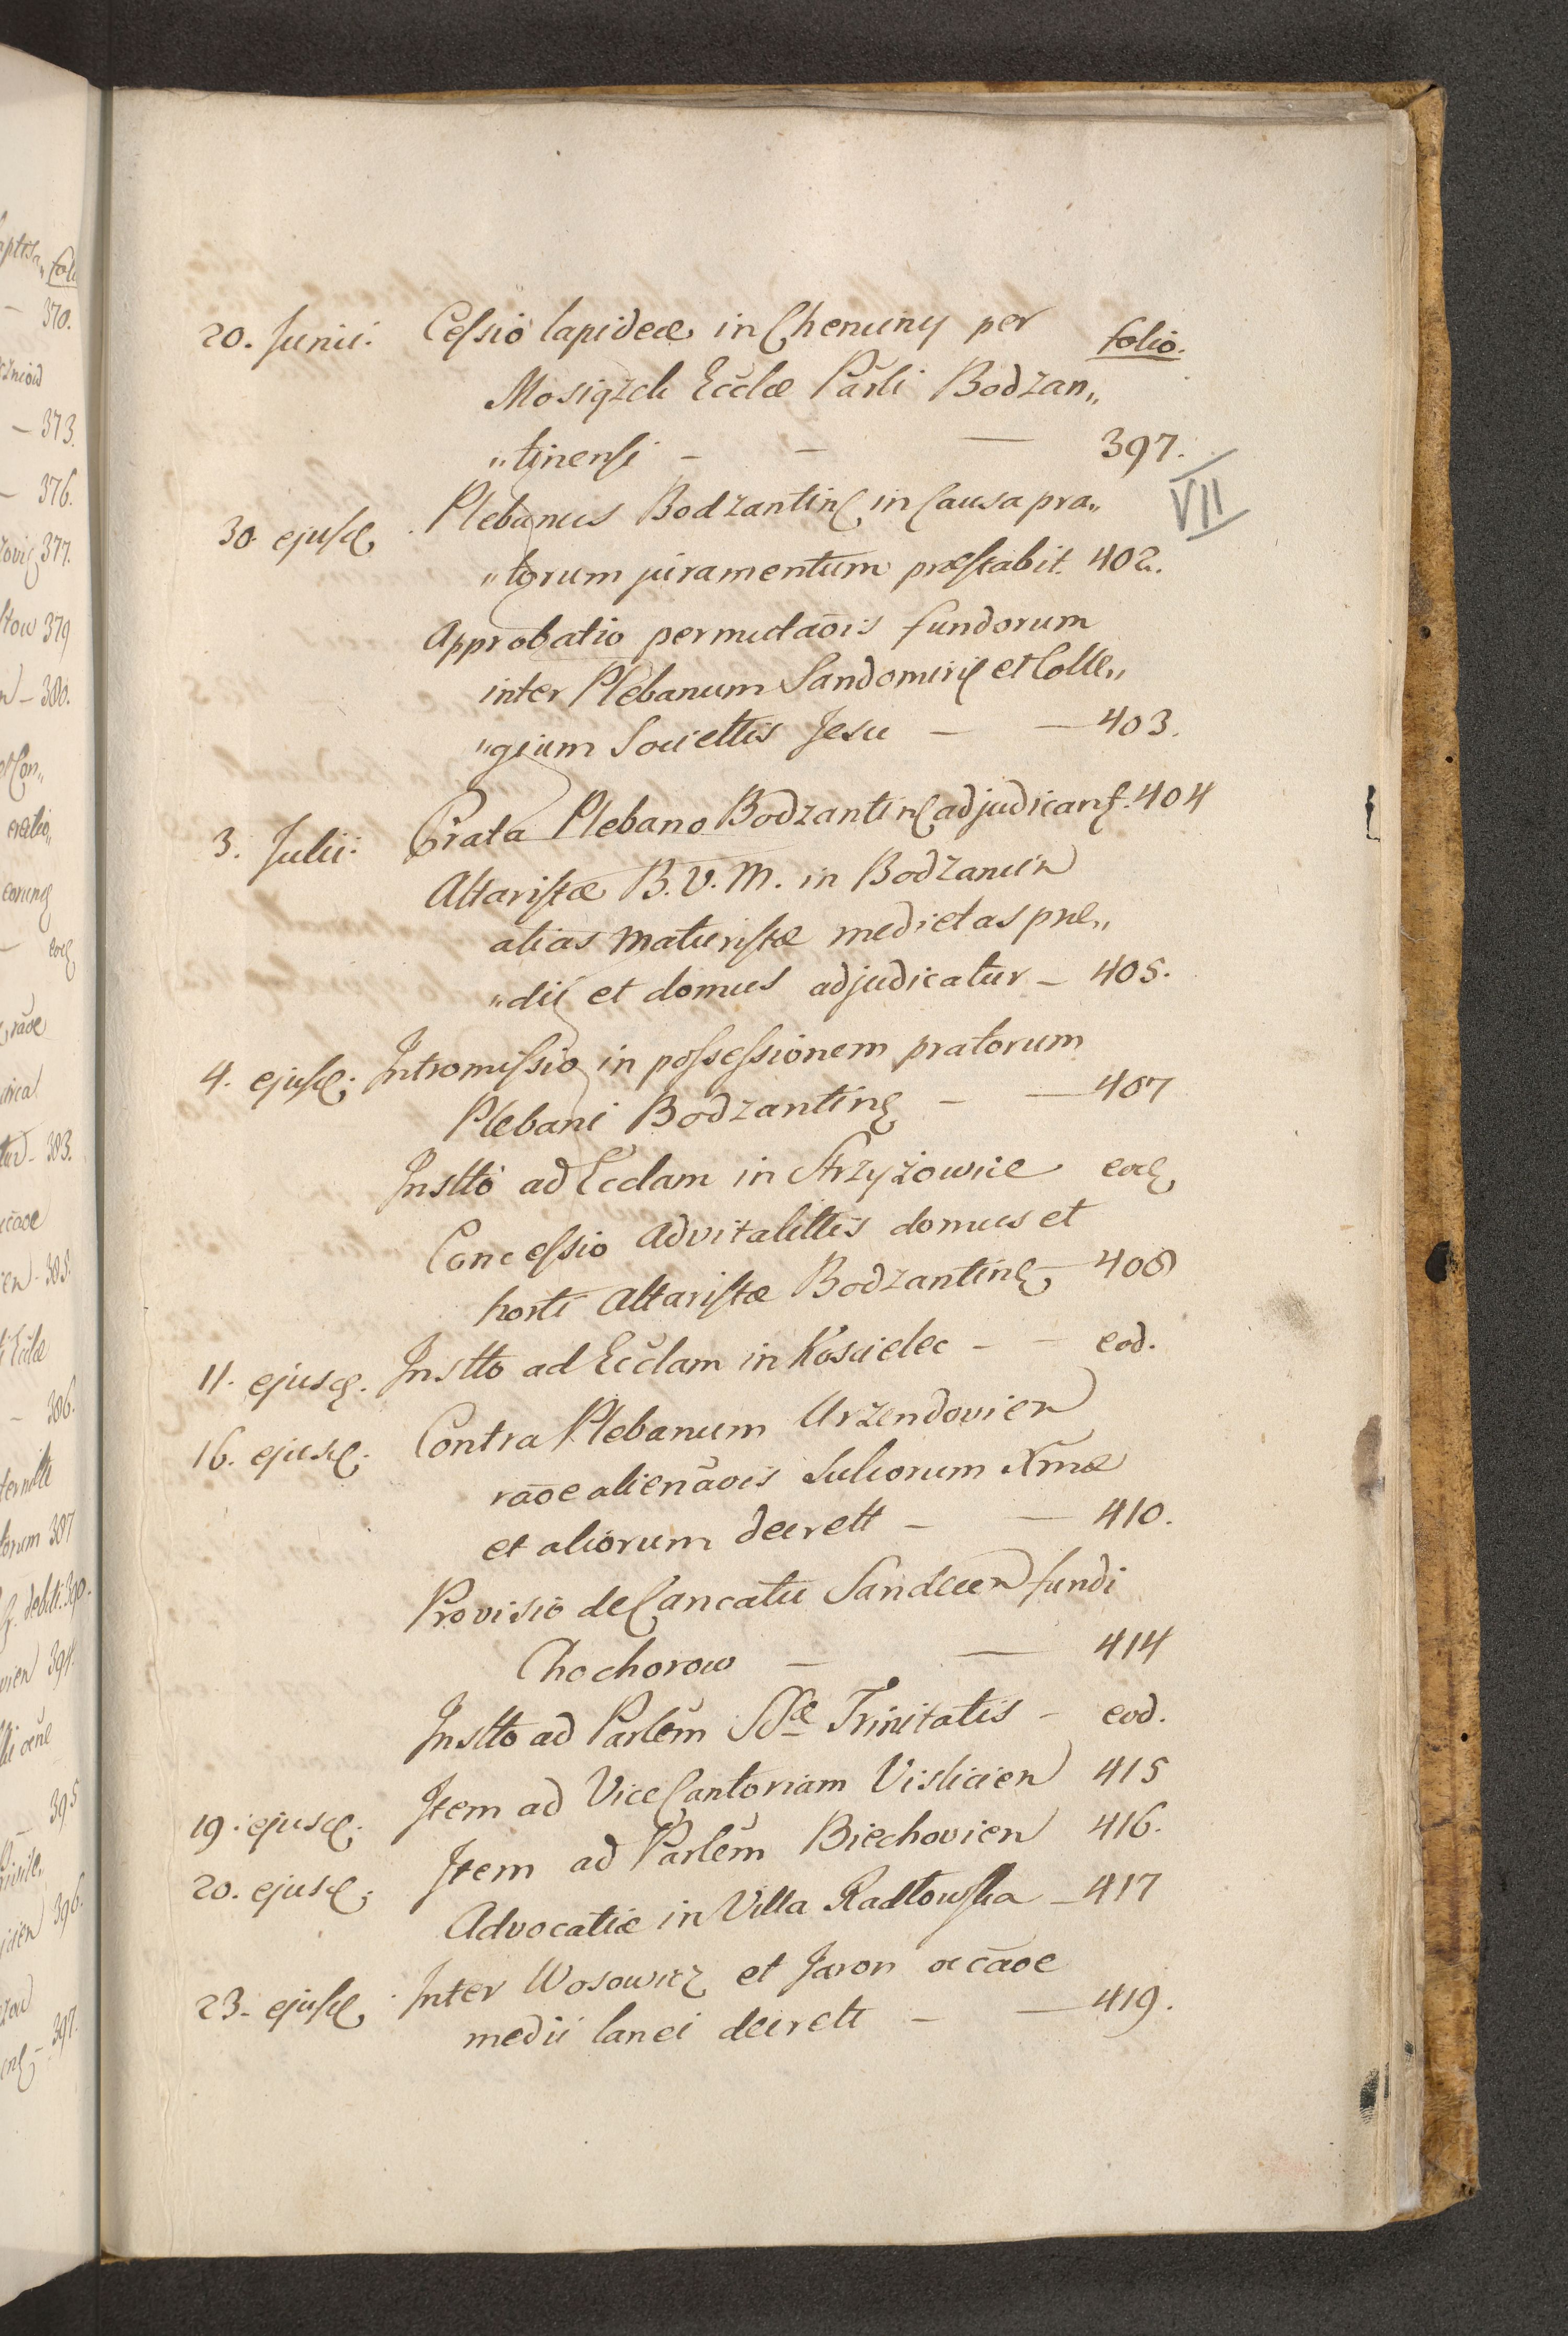 folio.
20. Junii. Cessio lapideæ in Chenciny per
Mosiązek Ecclæ Parli Bodzan„
„tinensi - - — 397.
VII
30 ejusd. Plebanus Bodzantin in Causa pra„
„torum juramentum præstabit. 402.
Approbatio permutaōis fundorum
inter Plebanum Sandomiri et Colle„
„gium Societtis Jesu - — 403.
3. Julii. Prata Plebano Bodzantin adjudicant. 404
Altaristæ B. V. M. in Bodzancin
alias Maturistæ medietas præ„
„dii et domus adjudicatur - 405.
4. ejusd. Intromissio in possessionem pratorum
Plebani Bodzantin - — 407
Instto ad Ecclam in Strzyżowice eod
Concessio advitalittis domus et
horti Altaristæ Bodzantin - 408
11. ejusd. Instto ad Ecclam in Kościelec - - eod.
16. ejusd. Contra Plebanum Urzendovien
raōe alienaōis Suliorum Xmæ
et aliorum decrett - — 410.
Provisio de Cancatu Sandecen fundi
Chochorow - — 414
Instto ad Parlem SSæ Trinitatis - eod.
19. ejusd. Item ad ViceCantoriam Vislicien 415
20. ejusd. Item ad Parlem Biechovien 416.
Advocatiæ in Villa Radłowska - 417
23. ejusd. Inter Wosowicz et Jaron occāoe
medii lanei decrett - — 419.